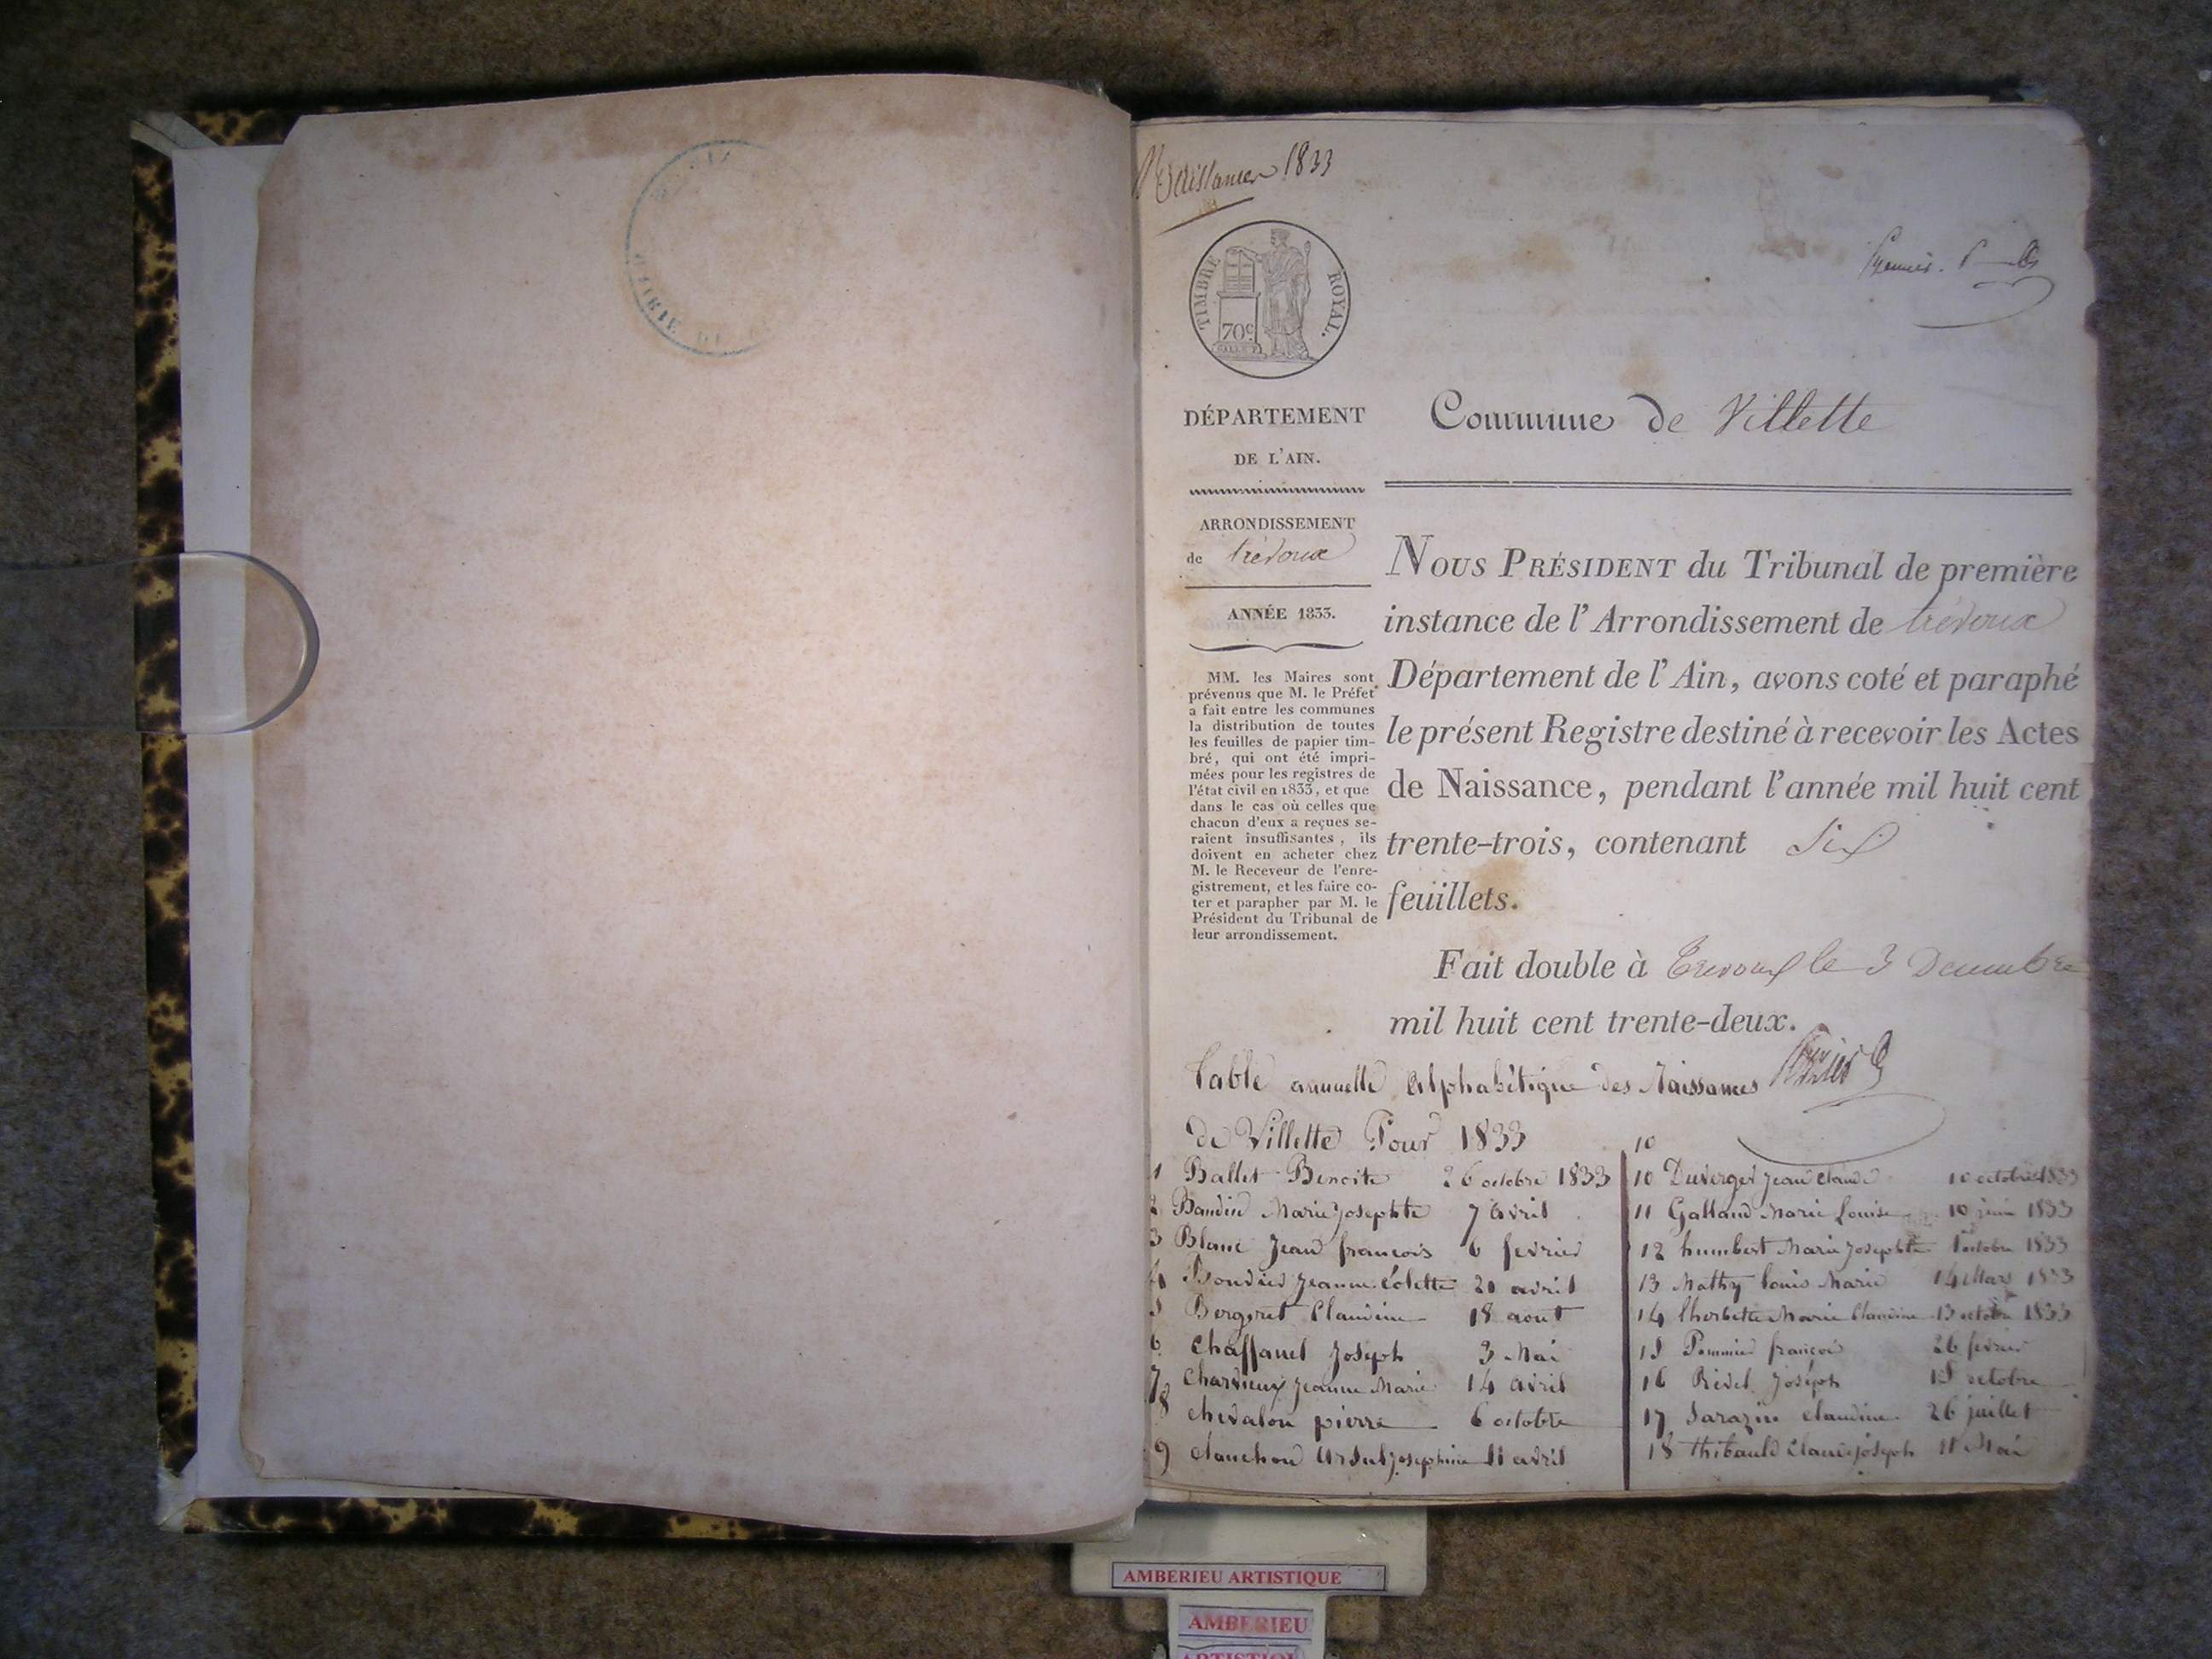 Naissances 1833
Premier
TIMBRE ROYAL.
70c
DÉPARTEMENT
DE L'AIN.
Commune de Villette
ARRONDISSEMENT
de trévoux
ANNÉE 1833.
MM. les Maires sont
prévenus que M. le Préfet
a fait entre les communes
la distribution de toutes
les feuilles de papier tim-
bré, qui ont été impri-
mées pour les registres de
l'état civil en 1833, et que
dans le cas où celles que
chacun d'eux a reçues se-
raient insuffisantes, ils
doivent en acheter chez
M. le Receveur de l'enre-
gistrement, et les faire co-
ter et parapher par M. le
Président du Tribunal de
leur arrondissement.
NOUS PRÉSIDENT du Tribunal de première
instance de l'Arrondissement de trévoux
Département de l'Ain, avons coté et paraphé
le présent Registre destiné à recevoir les Actes
de Naissance, pendant l'année mil huit cent
trente-trois, contenant Six
feuillets.
Fait double à Trevoux le 3 Decembre
mil huit cent trente-deux.
Table annuelle alphabétique des Naissances
de Villette Pour 1833
1 Ballet Benoite 26 octobre 1833
2 Baudin Marie Josephte 7 avril
3 Blanc Jean francois 6 fevrier
4 Jeanne Colette 20 avril
5 Bergeret Claudine 18 aout
6 Chaffanel Joseph 3 Mai
7 Charvieux Jeanne Marie 14 avril
8 chevalon pierre 6 octobre
9 clauchon Ursul josephine 11 avril
10
10 Duverger Jean Claude 10 octobre 1833
11 Galland Marie Louise 10 juin 1833
12 humbert Marie Josephte 1er octobre 1833
13 Mathy Louis Marie 14 Mars 1833
14 Marie Claudine 13 octobre 1833
15 Pommier françois 26 fevrier
16 Joseph octobre
17 Sarazin claudine 26 juillet
18 thibauld Claude joseph 11 Mai
MAIRIE DE
AMBERIEU ARTISTIQUE
AMBERIEU